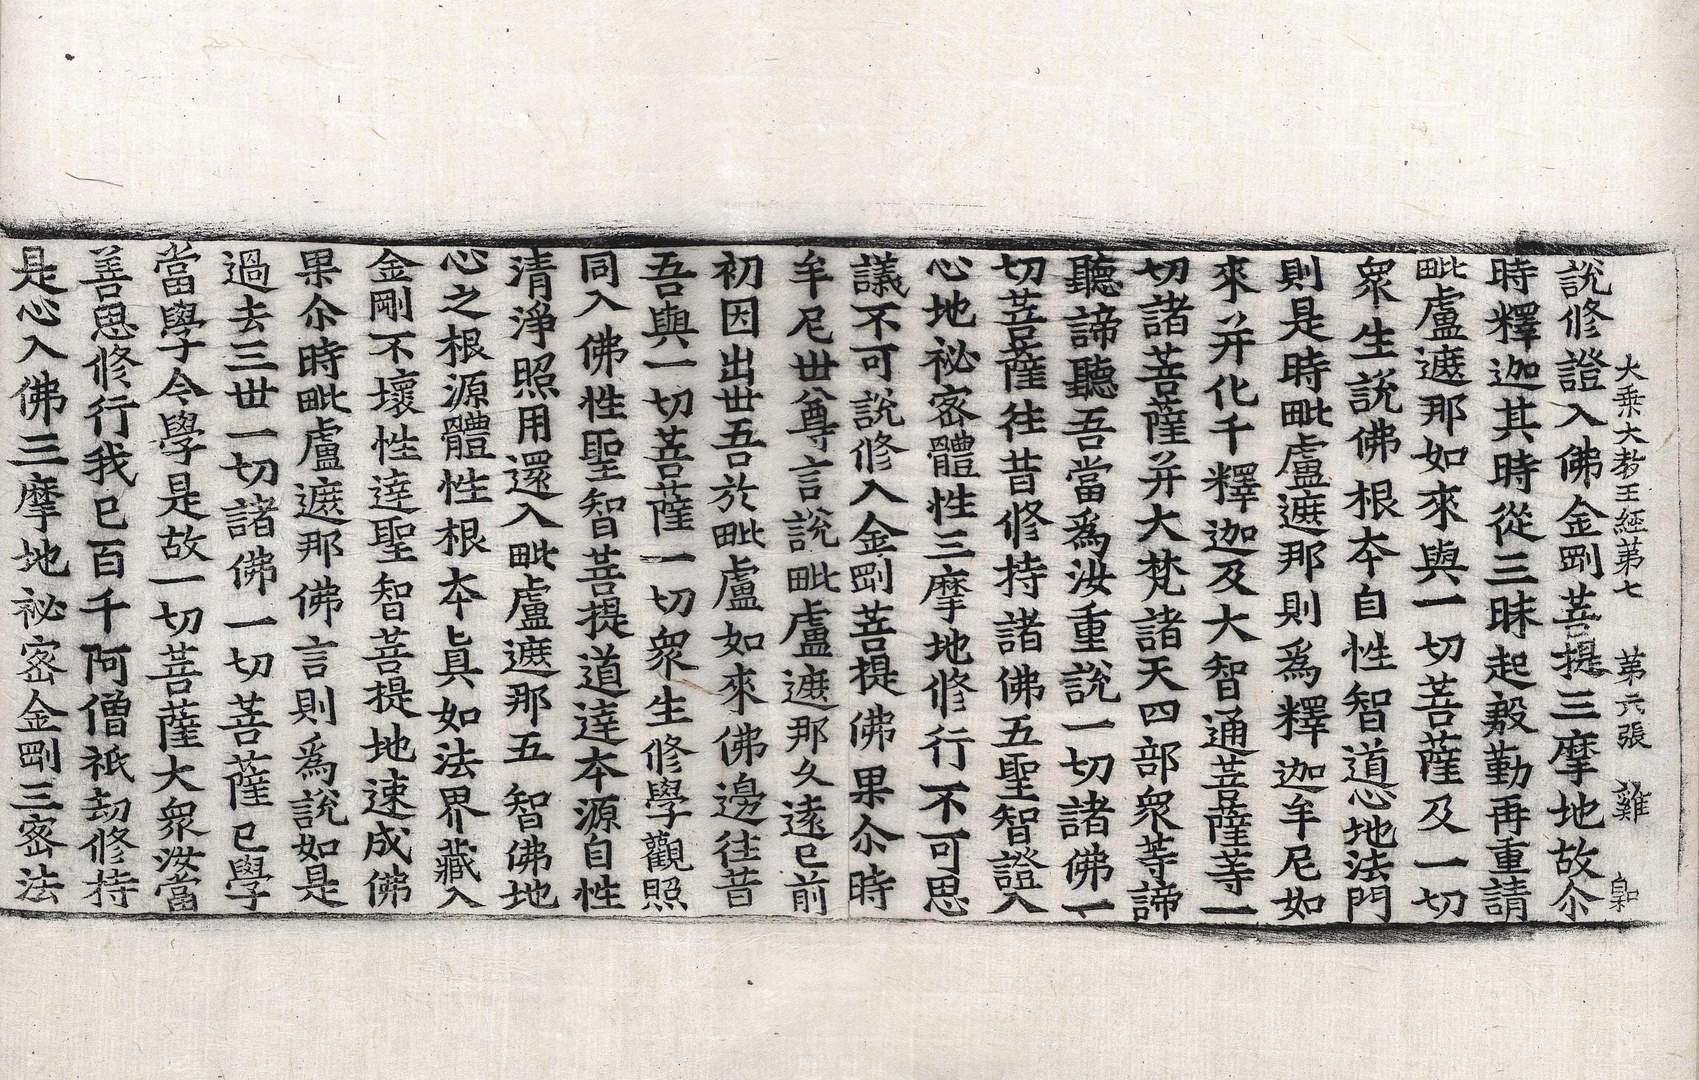 大乗大教王経第七 第六張 雞
說修證入佛金剛菩提三摩地故尒
時釋迦其時從三昧起殷勤再重請
毗盧遮那如來與一切菩薩及一切
衆生說佛根夲自性智道心地法門
則是時毗盧遮那則爲釋迦牟尼如
來并化千釋迦及大智通菩薩等一
切諸菩薩并大梵諸天四部衆等諦
聽諦聽吾當爲汝重說一切諸佛一
切菩薩往昔修持諸佛五聖智證入
心地祕密體性三摩地修行不可思
議不可說修入金剛菩提佛果尒時
牟尼世尊言說毗盧遮那久遠已前
初因出世吾於毗盧如來佛邊往昔
吾與一切菩薩一切衆生修學觀照
同入佛性聖智菩提道達夲源自性
清淨照用還入毗盧遮那五智佛地
心之根源體性根夲眞如法界藏入
金剛不壞性達聖智菩提地速成佛
果尒時毗盧遮那佛言則爲說如是
過去三世一切諸佛一切菩薩已學
當學今學是故一切菩薩大衆汝當
善思修行我已百千阿僧祇劫修持
是心入佛三摩地祕密金剛三密法